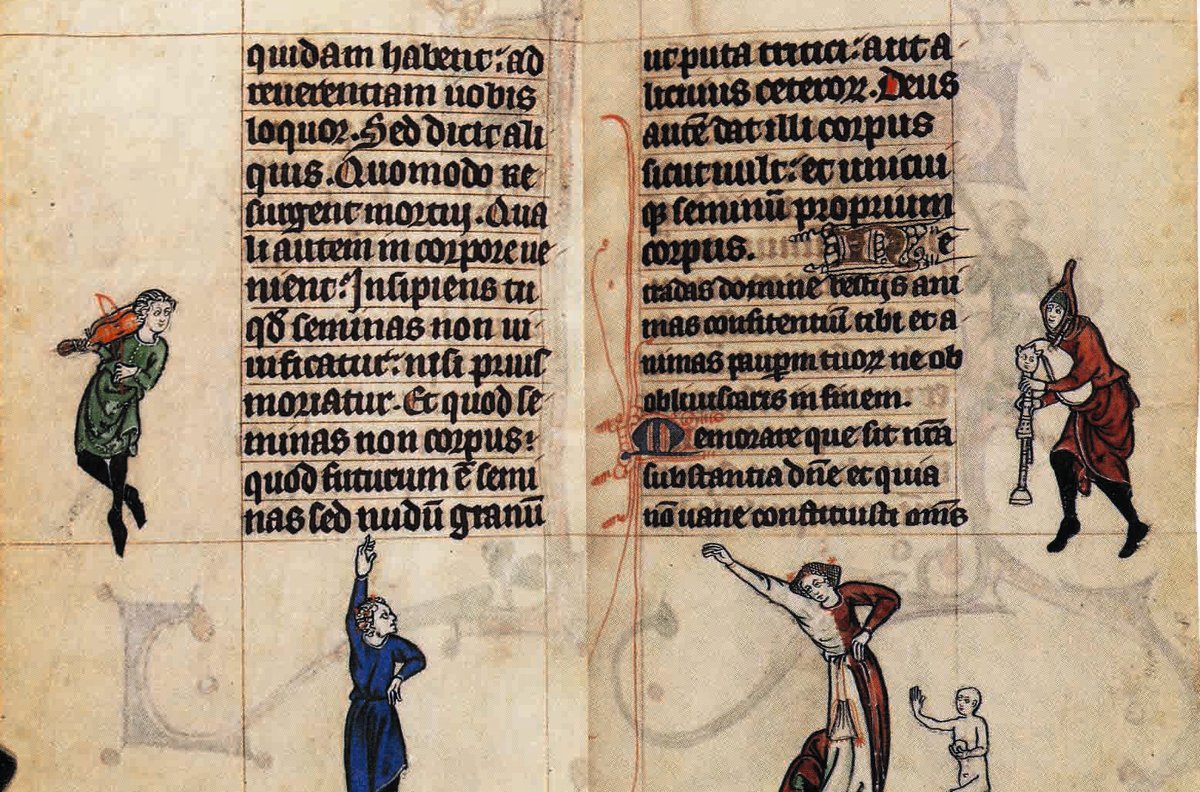 quidam habent: ad
reuerentiam uobis
loquor. Sed dicit ali
quis. Quomodo re
surgent mortuj. Qua
li autem in corpore ue
nient: Insipiens tu
qđ seminas non ui
uificatur: nisi prius
moriatur. Et quod se-
minas non corpus:
quod futurum ē semi
nas sed nudū granū
ut puta tritici: aut a
licuius ceteroꝝ. Deus
autē dat illi corpus
sicut uult: et unicui
qꝫ seminū proprium
corpus. e
tradas domine bestijs ani
mas confitentiū tibi et a
nimas pauꝑm tuoꝝ ne ob
obliuiscaris in finem.
Memorare que sit nr̄a
substantia dn̄e et quia
nō uane constituisti om̄s